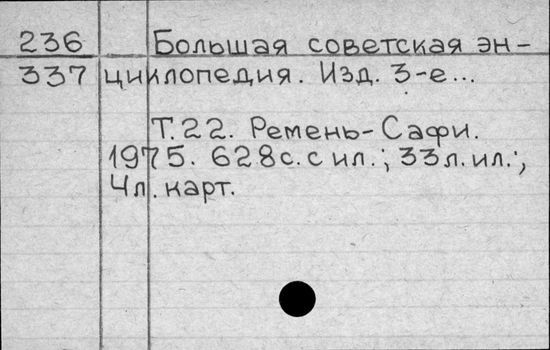 236 Большая советская эн-
337 циклопедия. Изд. 3-е...
Т.22. Ремень-Сафи.
1975. 628с. с ил.; 33л. ил.;
4л. карт.